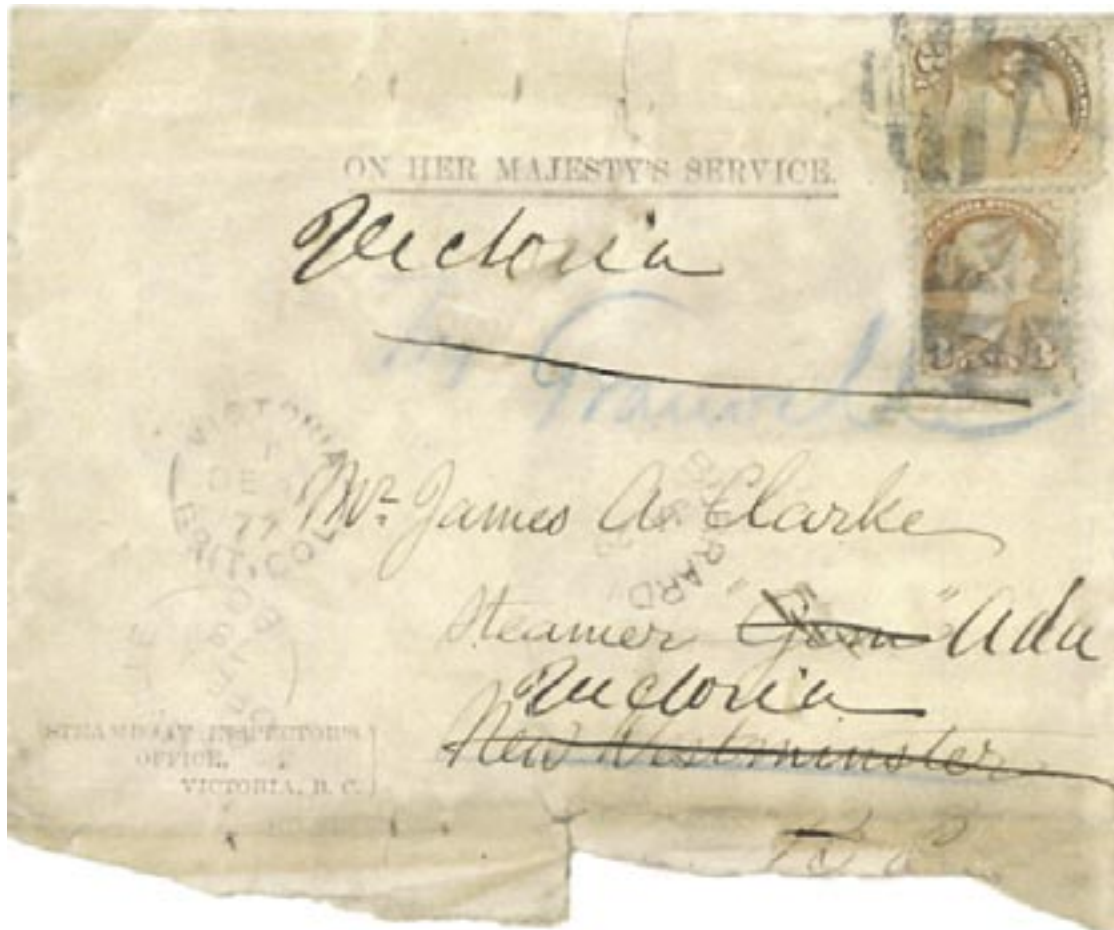 ON HER MAJESTY'S SERVICE.
Victoria
Granville
VICTORIA
1
DE
77
BRIT. COL
Mr. James A. Clarke
RRARD
Steamer "Gem" Ada
Victoria
New Westminster
STEAMBOAT INSPECTOR'S
OFFICE,
VICTORIA, B. C.
B C